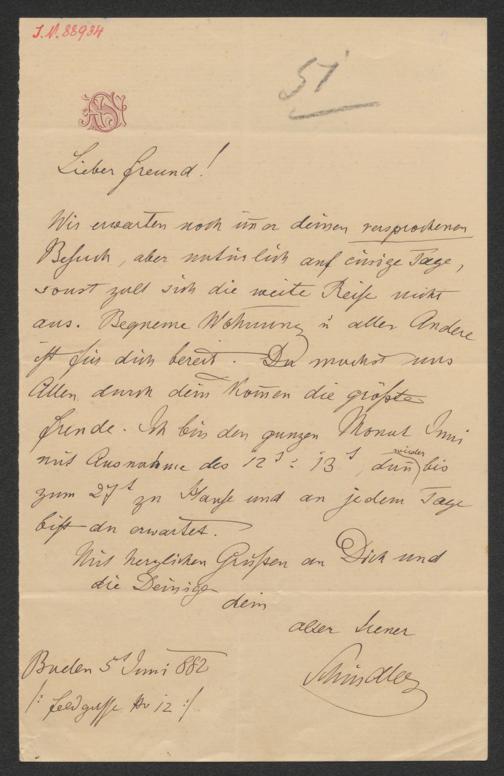 I.N. 88934
51
Lieber Freund!
Wir erwarten noch im̄er deinen versprochenen
Besuch, aber natürlich auf einige Tage,
sonst zalt sich die weite Reise nicht
aus. Bequeme Wohnung u alles Andere
ist für dich bereit. Du machst uns
Allen durch dein Kom̄en die größte
Freude. Ich bin den ganzen Monat Juni
mit Ausnahme des 12t: 13t, dan̄ wieder bis
zum 27t zu Hause und an jedem Tage
bist du erwartet.
Mit herzlichen Grüßen an Dich und
die Deinigen
dein
alter
Schindler
Baden 5t Juni 882
/: Feldgasse No 12 :/